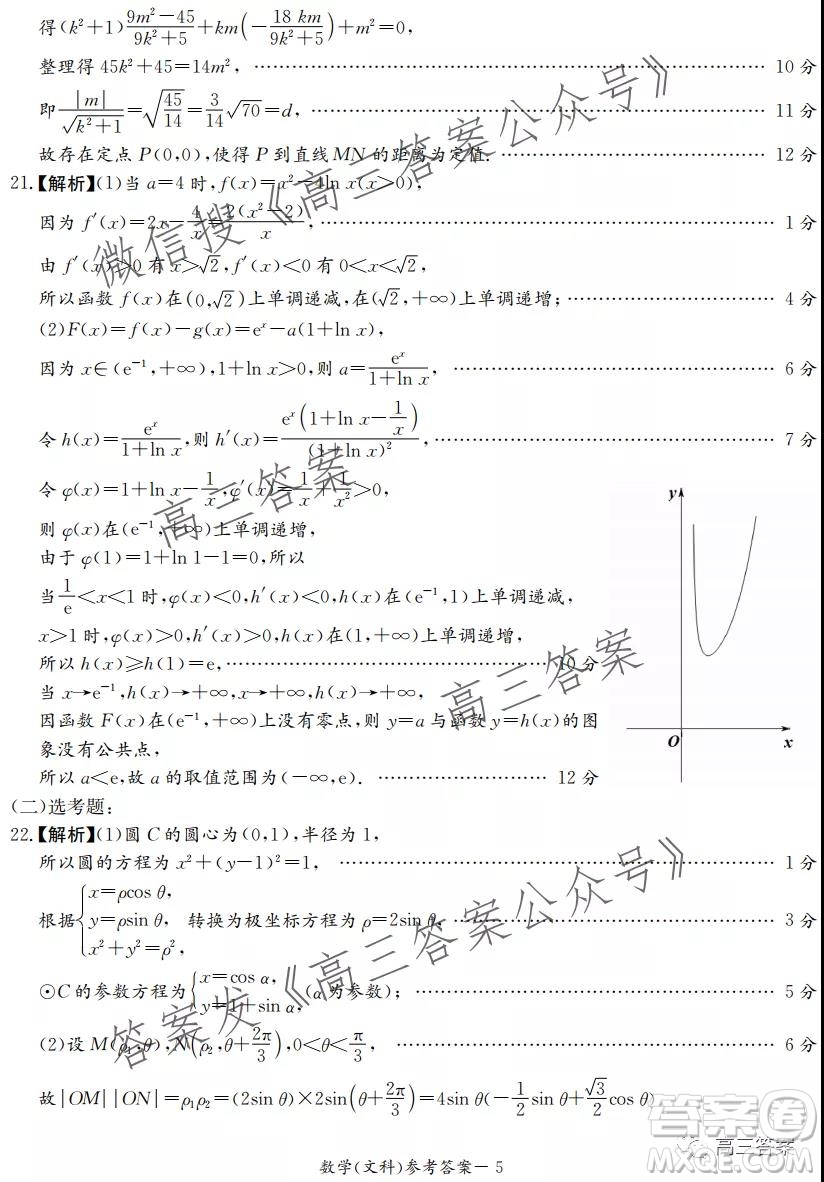 得(k²+1)\frac{9m²-45}{9k²+5}+km(-\frac{18 km}{9k²+5})+m²=0,
整理得45k²+45=14m², …… 10分
即\frac{|m|}{\sqrt{k²+1}}=\sqrt{\frac{45}{14}}=\frac{3}{14}\sqrt{70}=d, …… 11分
故存在定点P(0,0),使得P到直线MN的距离为定值. …… 12分
21.【解析】(1)当a=4时,f(x)=x²-4ln x(x>0),
因为f′(x)=2x-\frac{4}{x}=\frac{2(x²-2)}{x}, …… 1分
由f′(x)>0有x>\sqrt{2},f′(x)<0有0<x<\sqrt{2},
所以函数f(x)在(0,\sqrt{2})上单调递减,在(\sqrt{2},+∞)上单调递增; …… 4分
(2)F(x)=f(x)-g(x)=eˣ-a(1+ln x),
因为x∈(e⁻¹,+∞),1+ln x>0,则a=\frac{eˣ}{1+ln x}, …… 6分
令h(x)=\frac{eˣ}{1+ln x},则h′(x)=\frac{eˣ(1+ln x-\frac{1}{x})}{(1+ln x)²}, …… 7分
令φ(x)=1+ln x-\frac{1}{x},φ′(x)=\frac{1}{x}+\frac{1}{x²}>0,
则φ(x)在(e⁻¹,+∞)上单调递增,
由于φ(1)=1+ln 1-1=0,所以
当\frac{1}{e}<x<1时,φ(x)<0,h′(x)<0,h(x)在(e⁻¹,1)上单调递减,
x>1时,φ(x)>0,h′(x)>0,h(x)在(1,+∞)上单调递增,
所以h(x)≥h(1)=e, …… 10分
当x→e⁻¹,h(x)→+∞,x→+∞,h(x)→+∞,
因函数F(x)在(e⁻¹,+∞)上没有零点,则y=a与函数y=h(x)的图
象没有公共点,
所以a<e,故a的取值范围为(-∞,e). …… 12分
y
O
x
(二)选考题:
22.【解析】(1)圆C的圆心为(0,1),半径为1,
所以圆的方程为x²+(y-1)²=1, …… 1分
根据{x=ρcos θ, y=ρsin θ, x²+y²=ρ², 转换为极坐标方程为ρ=2sin θ, …… 3分
⊙C的参数方程为{x=cos α, y=1+sin α, (α为参数); …… 5分
(2)设M(ρ₁,θ),N(ρ₂,θ+\frac{2π}{3}),0<θ<\frac{π}{3}, …… 6分
故|OM||ON|=ρ₁ρ₂=(2sin θ)×2sin(θ+\frac{2π}{3})=4sin θ(-\frac{1}{2}sin θ+\frac{\sqrt{3}}{2}cos θ)
数学(文科)参考答案-5
微信搜《高三答案公众号》
高三答案
高三答案
答案发《高三答案公众号》
高三答案
答案圈
MXQE.COM